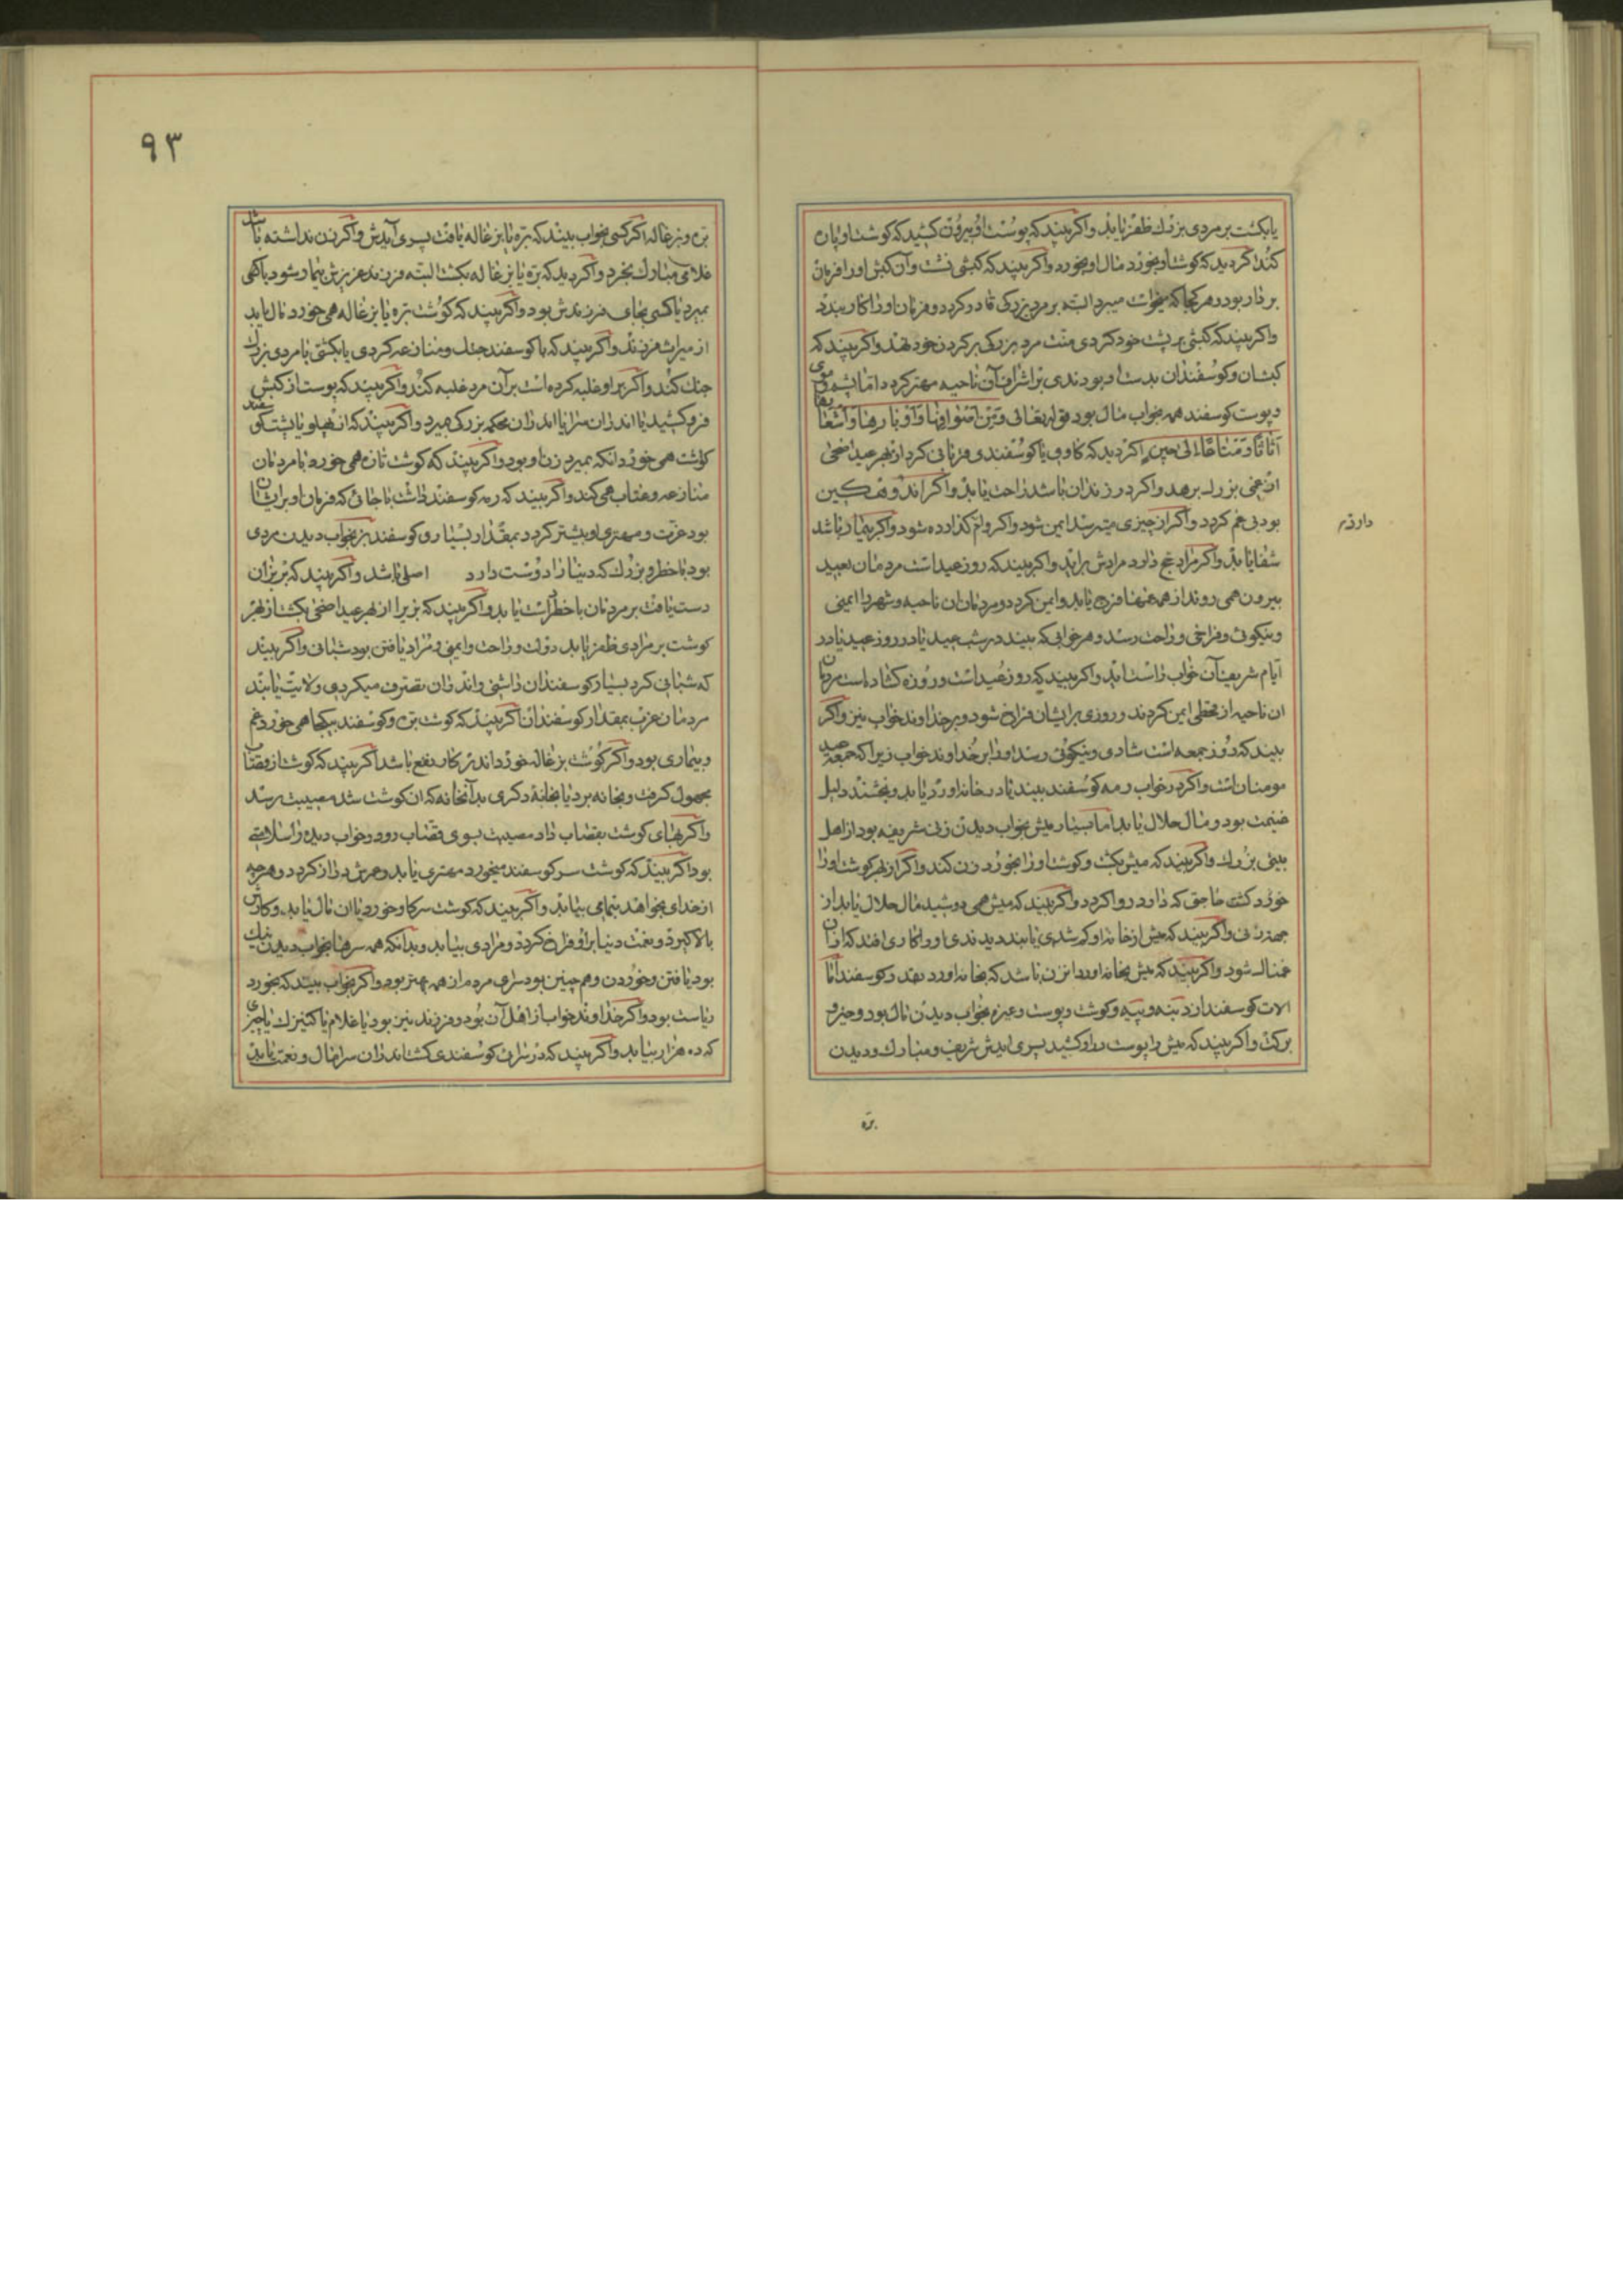 یا بکشت بر مردی بزرك ظفر یابد واکر بیند که پوست او بیرون کشید که کوشت او پاره
کند اکر دید که کوشت او بخورد مال او بخورد واکر بیند که کبشی نشست وآن کبش او را فرمان
بردار بود و هر کجا که میخواست میبرد البته بر مرد بزرکی قادر کردد و فرمان او را کار بندد
واکر بیند که کبشی بر پشت خود کردی منت مرد بزرکی بر کردن خود نهد واکر بیند که
کبشان و کوسفندان بدست او بودندی بر اشراف آن ناحیه مهتر کردد اما پشم و موی
و پوست کوسفند همه بخواب مال بود قوله تعالی ومن اصوافها واوبارها واشعارها
اثاثا ومتاعا الی حین اکر دید که کاوی یا کوسفندی قربانی کرد از بهر عید اضحی
از غمی بزرك برهد واکر در زندان باشد راحت یابد واکر اندوهکین
بود بی غم کردد واکر از چیزی میترسد ایمن شود واکر وام کذارده شود واکر بیمار باشد
شفا یابد واکر مراد حج دارد مرادش براید واکر بیند که روز عید است مردمان بعید
بیرون همی روند از همه غمها فرج یابد وایمن کردد و مردمان ان ناحیه و شهر را ایمنی
و نیکوئی و فراخی و راحت رسد و هر خوابی که بیند در شب عید یا در روز عید یا در
ایام شریف آن خواب راست اید واکر بیند که روز عید است و روزه کشاده است مردمان
ان ناحیه از قحطی ایمن کردند و روزی بر ایشان فراخ شود و بر خداوند خواب نیز واکر
بیند که روز جمعه است شادی و نیکوئی رسد او را بر خداوند خواب زیرا که جمعه عید
مومنان است واکر در خواب رمه کوسفند بیند یا در خانه اورد یابد و بخشند دلیل
غنیمت بود و مال حلال یابد اما بسیار میش بخواب دیدن زنی شریفه بود از اهل
بیتی بزرك واکر بیند که میش بکشت و کوشت او را بخورد زن کند واکر از بهر کوشت او را
خورد کشت حاجتی که دارد روا کردد واکر بیند که میش همی دوشید مال حلال یابد از
جهت زنی واکر بیند که میش از خانه او کم شدی یا بدزدیدندی او را کاری افتد که ازان
غمناك شود واکر بیند که میش بخانه اورد انزن باشد که بخانه اورد بعقد و کوسفند اما
الات کوسفند از دنبه و پیه و کوشت و پوست و غیره بخواب دیدن مال بود و خیر و
برکت واکر بیند که میش را پوست در او کشید پسری ایدش شریف و مبارك و دیدن
بره
دارد
۹۳
بره و بزغاله اکر کسی بخواب بیند که بره یا بزغاله یافت پسری آیدش واکر زن نداشته باشد
غلامی مبارك بخرد واکر دید که بره یا بزغاله بکشت البته فرزند عزیزش بیمار شود یا کهی
بمیرد یا کسی بجای فرزندش بود واکر بیند که کوشت بره یا بزغاله همی خورد مال یابد
از میراث فرزند واکر بیند که با کوسفند جنك و منازعه کردی یا بکشتی با مردی بزرك
جنك کند واکر بر او غلبه کرده است بر آن مرد غلبه کند واکر بیند که پوست از کبش
فرو کشید یا اندران سرا یا اندران محکمه بزرکی میرد واکر بیند که از پهلو یا پشت کوسفند
کوشت همی خورد انکه بمیرد زن او بود واکر بیند که کوشت تازه همی خورد با مردمان
منازعه و عتاب همی کند واکر بیند که رمه کوسفند داشت یا جائی که فرمان او بر ایشان
بود عزت و مهتری او بیشتر کردد بمقدار بسیاری کوسفند بز بخواب دیدن مردی
بود با خطر و بزرك که دنیا را دوست دارد اصلی باشد واکر بیند که بر بزان
دست یافت بر مردمان با خطر دست یابد واکر بیند که بز برا از بهر عید اضحی بکشت از بهر
کوشت بر مرادی ظفر یابد دولت و راحت و ایمنی و مراد یافتن بود شبانی واکر بیند
که شبانی کرد بسیار کوسفندان داشتی واندران تصرف میکردی ولایت یابد
مردمان عرب بمقدار کوسفندان اکر بیند که کوشت بره و کوسفند بیکجا همی خورد غم
و بیماری بود واکر کوشت بزغاله خورد اندر کار نفع باشد اکر بیند که کوشت از قصاب
مجهول کرفت و بخانه برد یا بخانهٔ دکری بدآنخانه که ان کوشت شد مصیبت رسد
واکر بهای کوشت بقصاب داد مصیبت بسوی قصاب رود و خواب دیده را سلامتی
بود اکر بیند که کوشت سر کوسفند میخورد مهتری یابد و عمرش دراز کردد و هر چه
از خدای بخواهد بتمامی بیابد واکر بیند که کوشت سر کاو خورد یا ان مال یابد و کارش
بالا کیرد و نعمت دنیا بر او فراخ کردد و مرادی بیابد و بدانکه همه سرها بخواب دیدن نیك
بود یافتن و خوردن و هم چنین بود سرهای مردم از همه بهتر بود واکر بخواب بیند که بخورد
ریاست بود واکر خداوند خواب از اهل آن بود و فرزند نیز بود یا غلام یا کنیزك یا چیزی
که ده هزار بیابد واکر بیند که در سرای کوسفندی کشت اندران سرا مال و نعمت یابد